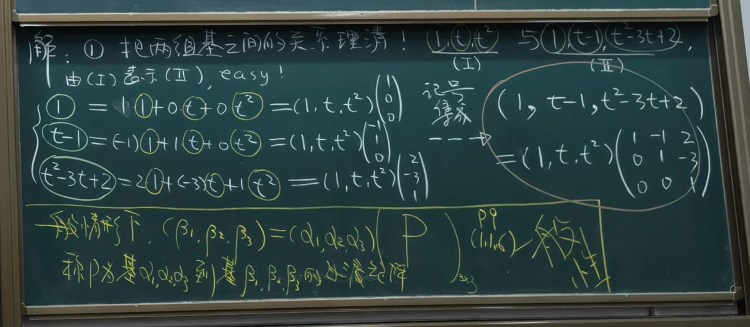 解: ① 把两组基之间的关系理清! 1, t, t² 与 1, t-1, t²-3t+2,
(I) (II)
由(I)表示(II), easy!
1 = 1 1 + 0 t + 0 t² = (1, t, t²) (1 0 0)
t-1 = (-1) 1 + 1 t + 0 t² = (1, t, t²) (-1 1 0)
t²-3t+2 = 2 1 + (-3) t + 1 t² = (1, t, t²) (2 -3 1)
记号
(1, t-1, t²-3t+2)
= (1, t, t²) (1 -1 2
0 1 -3
0 0 1)
一般情形下, (β₁, β₂, β₃) = (α₁, α₂, α₃) (P)₃ₓ₃ P9 (1.1.6) 一般性
称P为基α₁, α₂, α₃到基β₁, β₂, β₃的过渡矩阵